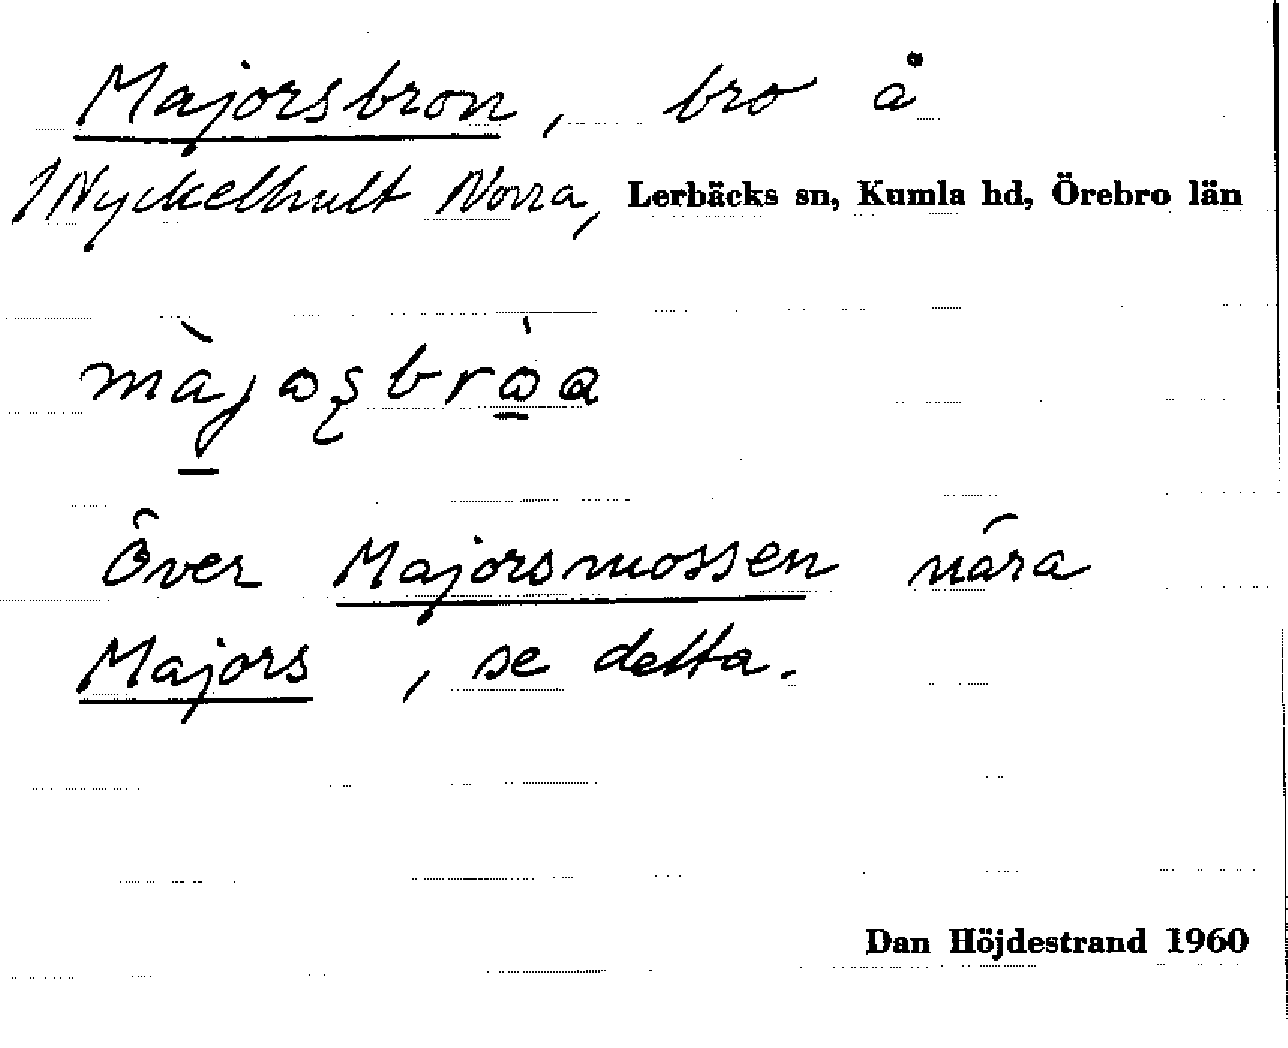 Majorsbron, bro å
1 Nyckelhult Norra, Lerbäcks sn, Kumla hd, Örebro län
Över Majorsmossen nära
Majors , se detta.
Dan Höjdestrand 1960